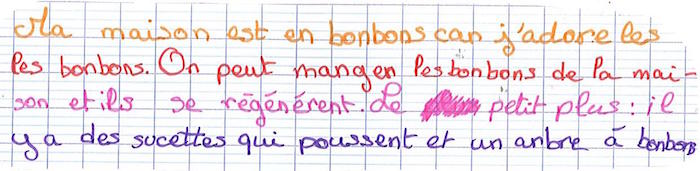 Ma maison est en bonbons car j'adore les
les bonbons. On peut manger les bonbons de la mai-
son et ils se régénérent. Le petit plus : il
y a des sucettes qui poussent et un arbre à bonbons